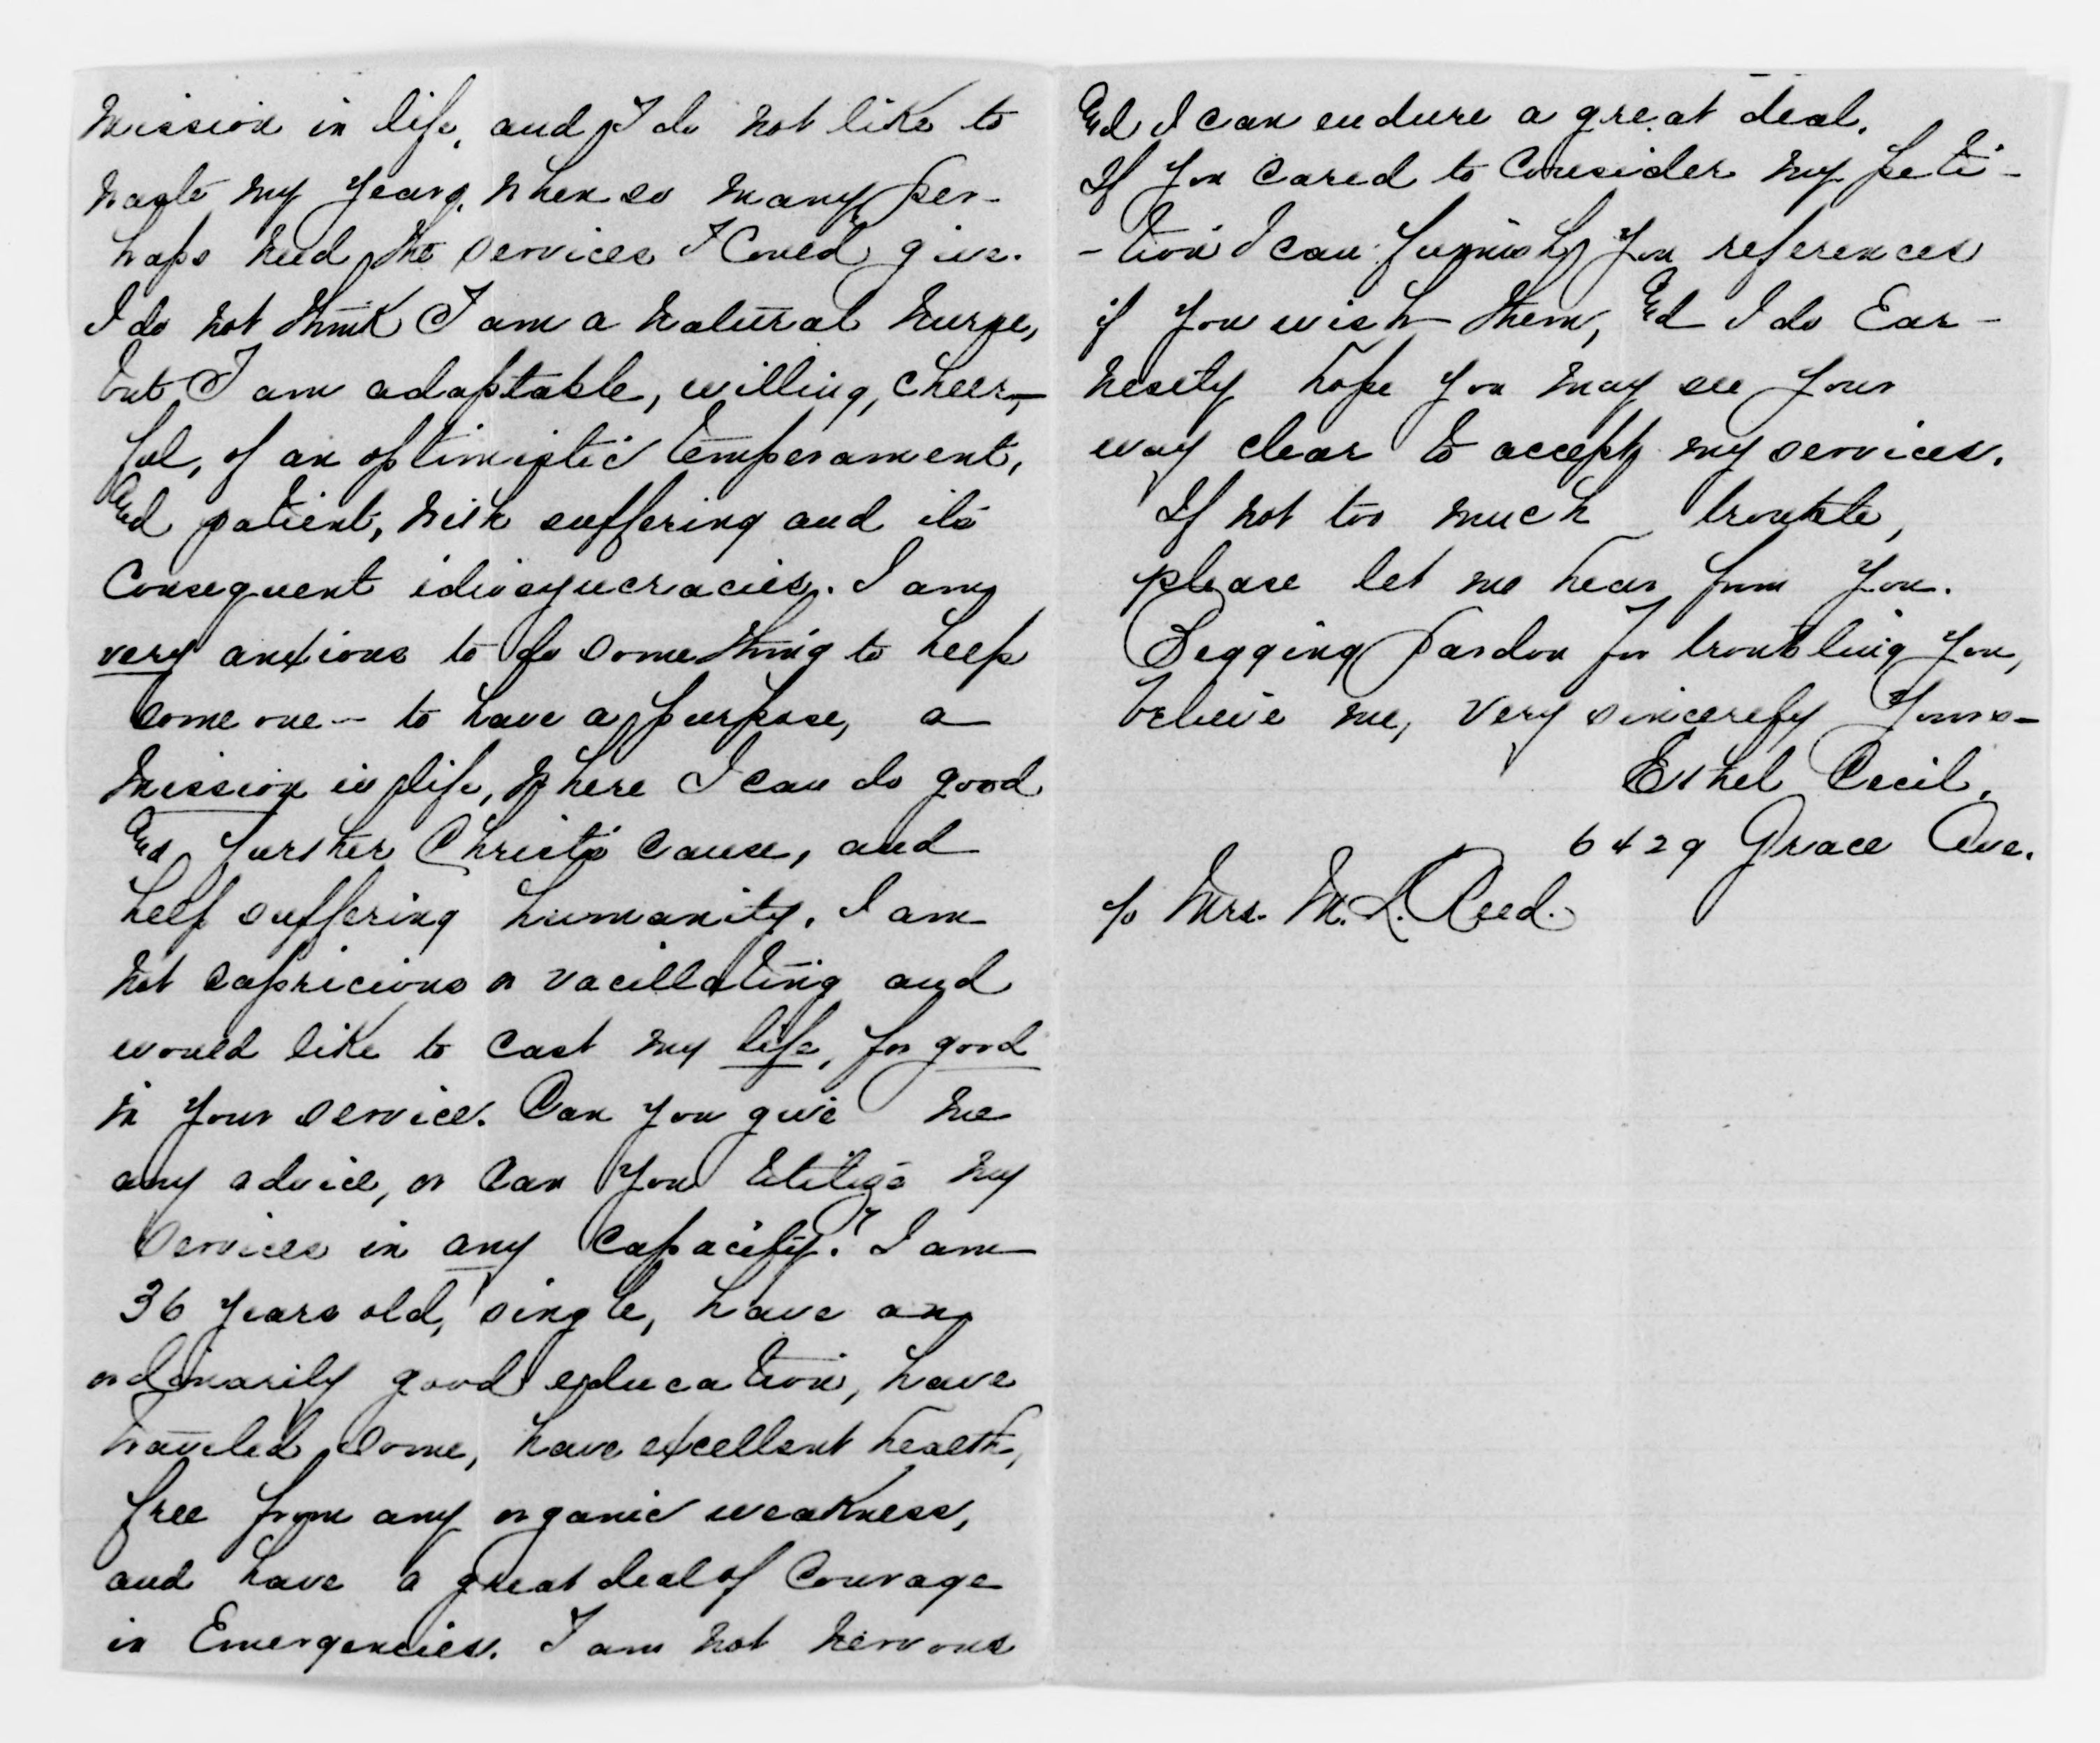 mission in life, and I do not like to
waste my years, when so many per-
haps need the services I could give.
I do not think I am a natural nurse,
but I am adaptable, willing, cheer-
ful, of an optimistic temperament,
And patient, with suffering and its
consequent idiosyncracies. I am
very anxious to do something to help
some one - to have a purpose, a
mission in life, where I can do good
And further Christ's cause, and
help suffering humanity. I am
not capricious or vacillating and
would like to cast my life, for good
in your service. Can you give me
any advice, or can you utilize my
services in any capacity? I am
36 years old, single, have an
ordinarily good education, have
traveled some, have excellent health,
free from any organic weakness,
and have a great deal of courage
in Emergencies. I am not nervous
And I can endure a great deal.
If you cared to consider my peti-
-tion I can furnish you references
if you wish them, And I do Ear-
nestly hope you may see your
way clear to accept my services.
If not too much trouble,
please let me hear from you.
Begging pardon for troubling you,
believe me, very sincerely yours -
Ethel Cecil,
6429 Grace Ave.
c/o Mrs. M. L. Reed.